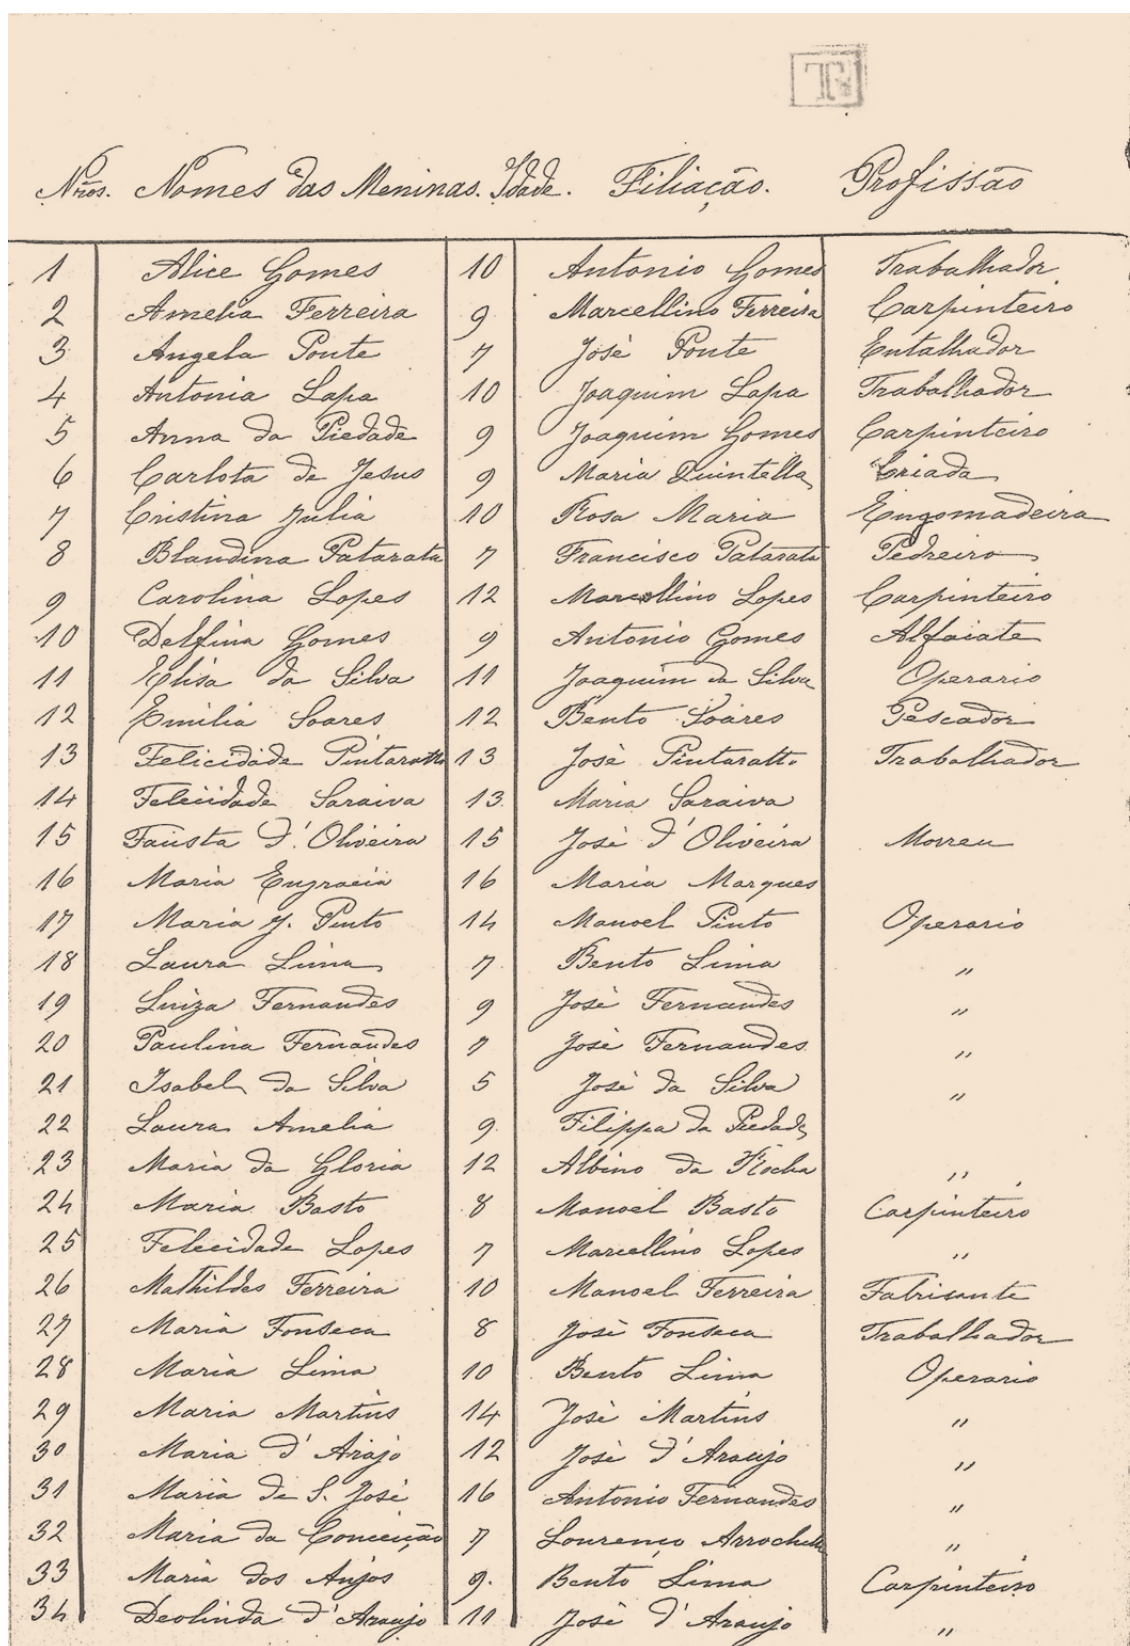 Nros. Nomes das Meninas. Idade. Filiação. Profissão
1 Alice Gomes 10 Antonio Gomes Trabalhador
2 Amelia Ferreira 9 Marcellino Ferreira Carpinteiro
3 Angela Ponte 7 José Ponte Entalhador
4 Antonia Lapa 10 Joaquim Lapa Trabalhador
5 Anna da Piedade 9 Joaquim Gomes Carpinteiro
6 Carlota de Jesus 9 Maria Quintella Criada
7 Cristina Julia 10 Rosa Maria Engomadeira
8 Blandina Patarata 7 Francisco Patarata Pedreiro
9 Carolina Lopes 12 Marcellino Lopes Carpinteiro
10 Delfina Gomes 9 Antonio Gomes Alfaiate
11 Elisa da Silva 11 Joaquim da Silva Operario
12 Emilia Soares 12 Bento Soares Pescador
13 Felicidade Pintaratto 13 José Pintaratto Trabalhador
14 Felicidade Saraiva 13 Maria Saraiva
15 Fausta d'Oliveira 15 José d'Oliveira Morreu
16 Maria Engracia 16 Maria Marques
17 Maria J. Pinto 14 Manoel Pinto Operario
18 Laura Lima 7 Bento Lima "
19 Luiza Fernandes 9 José Fernandes "
20 Paulina Fernandes 7 José Fernandes "
21 Isabel da Silva 5 José da Silva "
22 Laura Amelia 9. Filippa da Piedade
23 Maria da Gloria 12 Albino da Rocha "
24 Maria Basto 8 Manoel Basto Carpinteiro
25 Felecidade Lopes 7 Marcellino Lopes "
26 Mathildes Ferreira 10 Manoel Ferreira Fabricante
27 Maria Fonseca 8 José Fonseca Trabalhador
28 Maria Lima 10 Bento Lima Operario
29 Maria Martins 14 José Martins "
30 Maria d'Arajo 12 José d'Araujo "
31 Maria de S. José 16 Antonio Fernandes "
32 Maria da Conceição 7 Lourenço "
33 Maria dos Anjos 9. Bento Lima Carpinteiro
34 Deolinda d'Araujo 11 José d'Araujo "